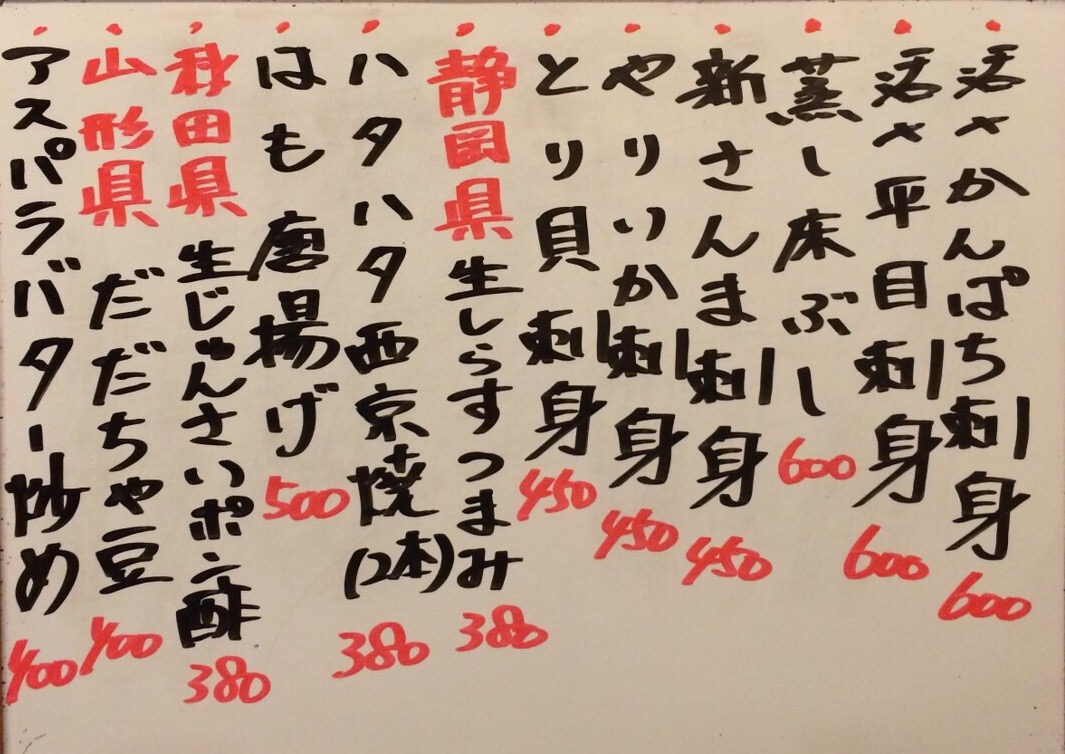 活〆かんぱち刺身 600
活〆平目刺身 600
蒸し床ぶし 600
新さんま刺身 450
やりいか刺身 450
とり貝刺身 450
静岡県 生しらすつまみ 380
ハタハタ西京焼(2本) 380
はも唐揚げ 500
秋田県 生じゅんさいポン酢 380
山形県 だだちゃ豆 400
アスパラバター炒め 400